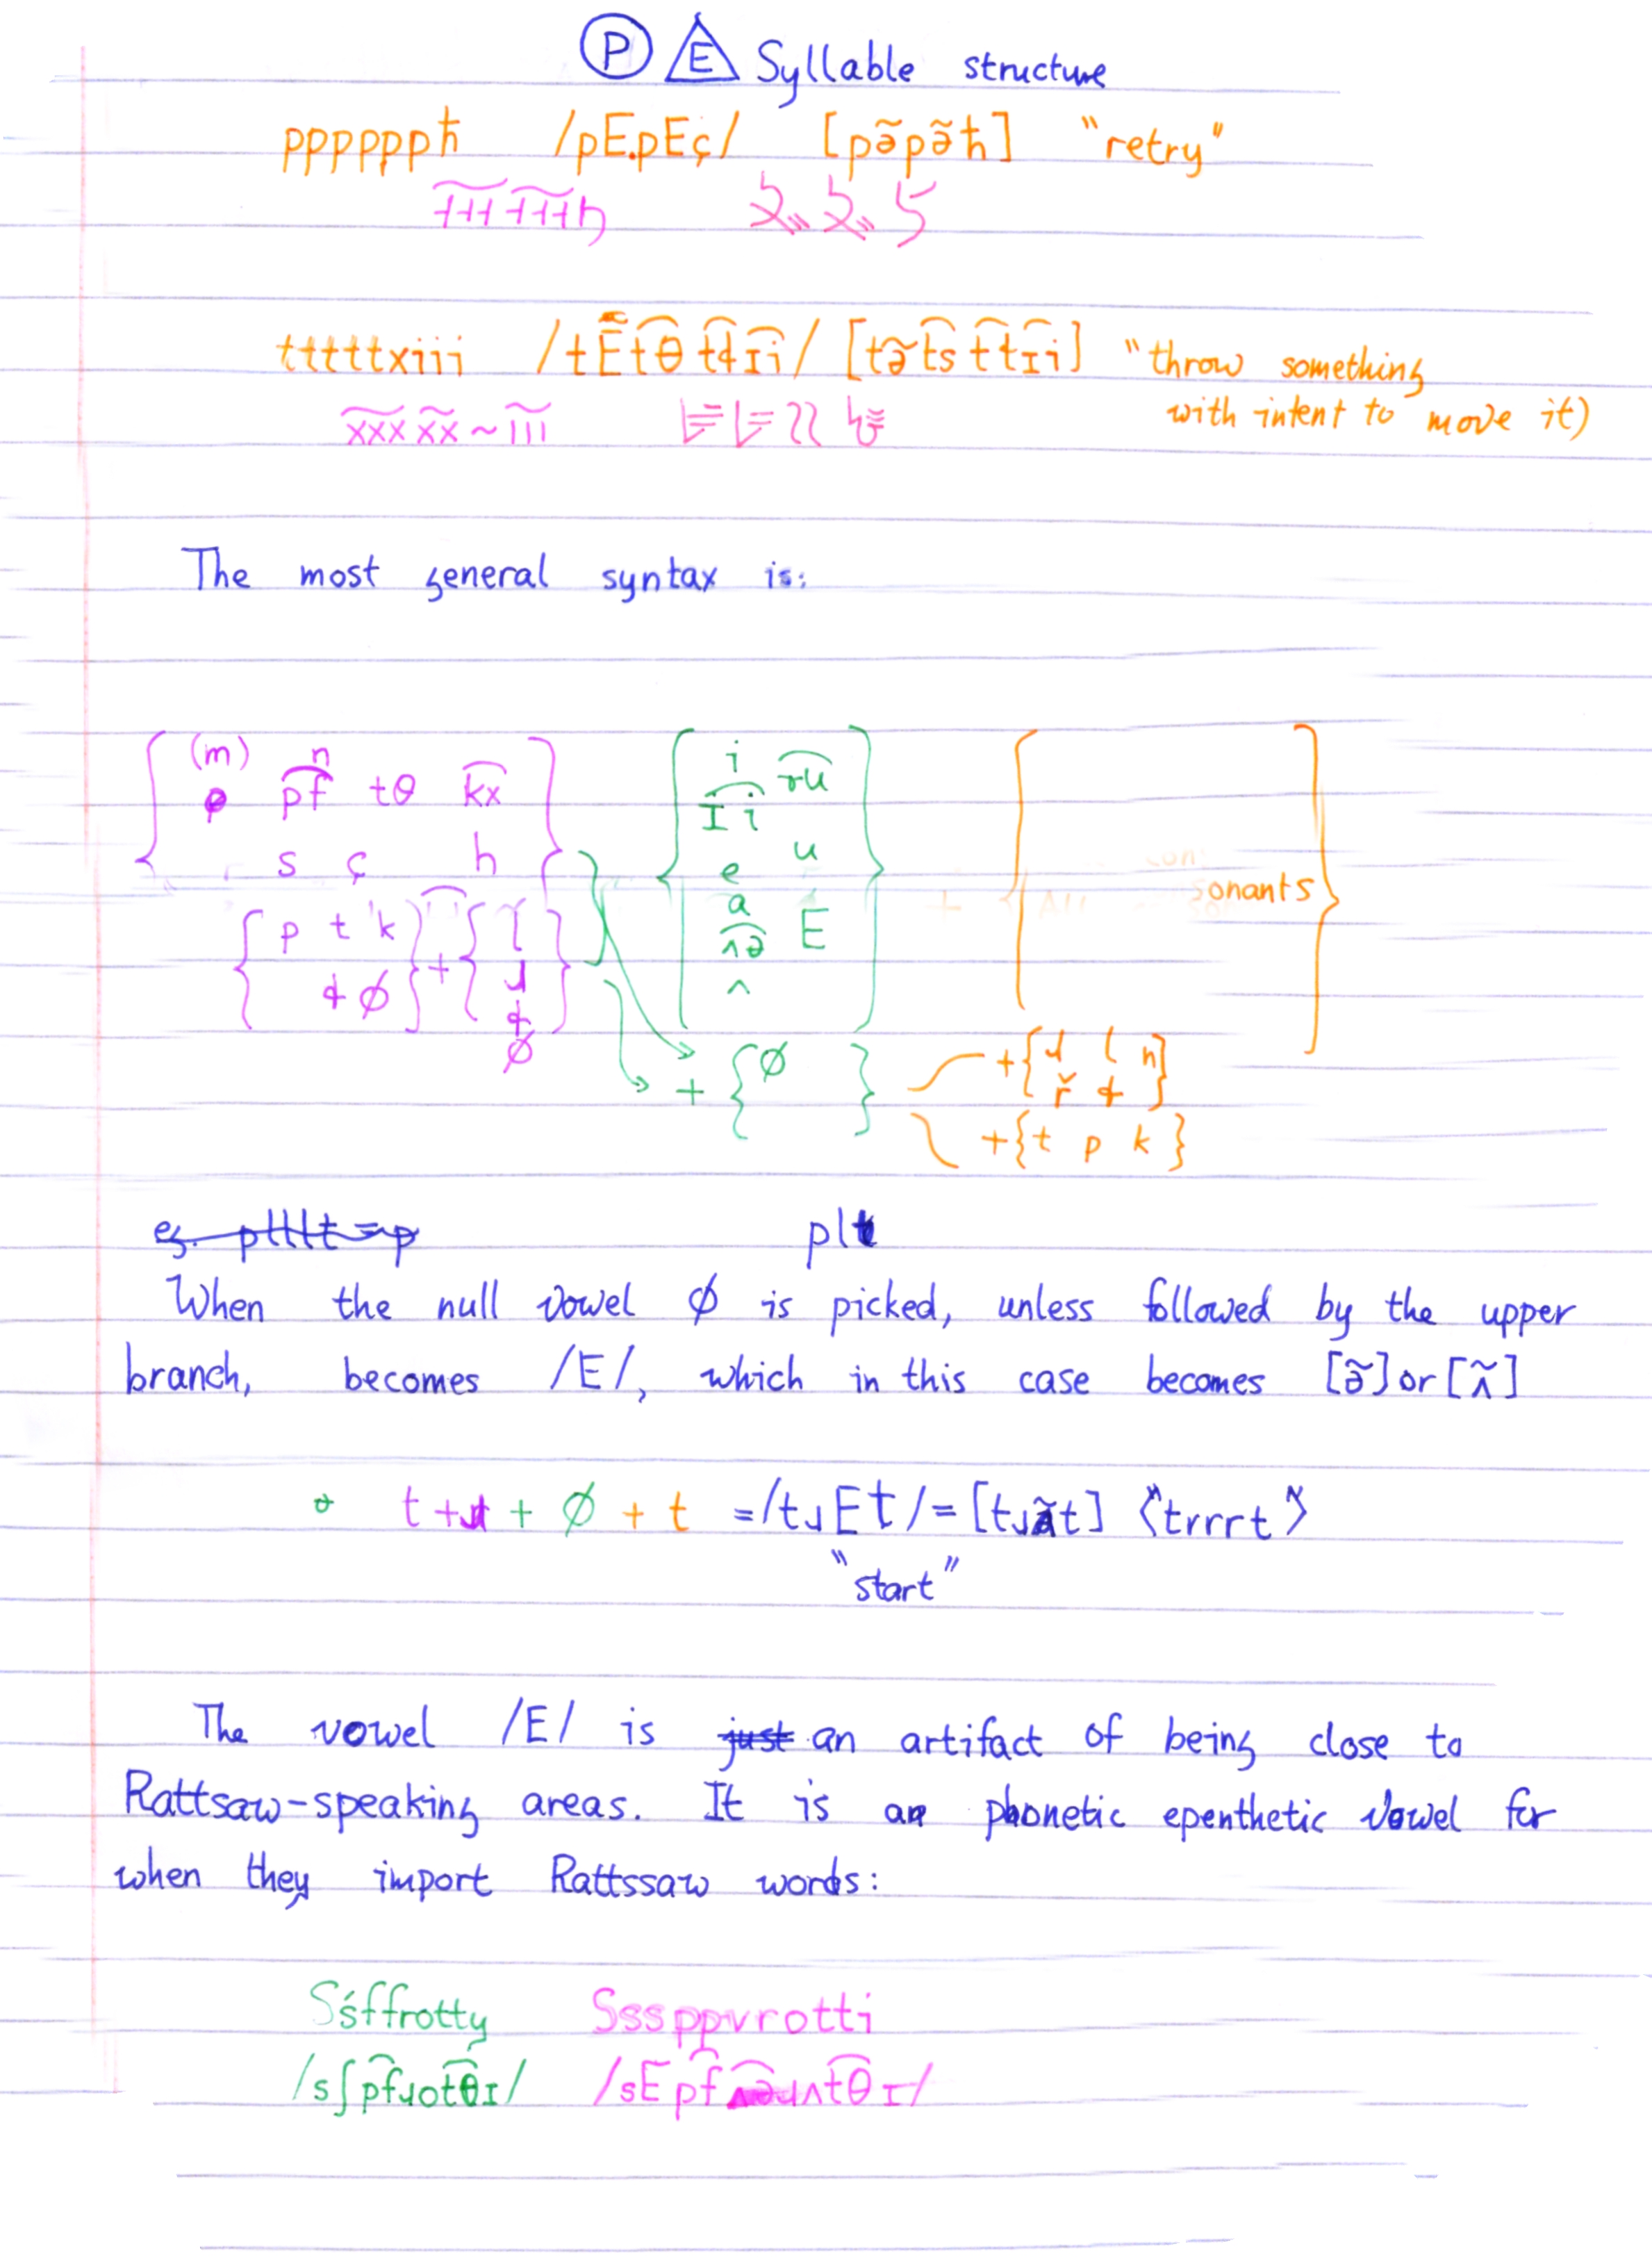 P E Syllable structure
ppppppħ /pE.pEç/ [pə̃pə̃ħ] "retry"
tttttxiii [tə̃t͡s t͡tɪ͡i] "throw something
with intent to move it)
The most general syntax is:
(m) n i
p͡f tθ k͡x ɪ͡i
s ç h e u
a
p t k ʌ͡ə E
ɸ ∅ + ʌ onants
∅ + { ∅ } + { ɹ l n
ř
+ { t p k }
eg. plllt = p pl
When the null vowel ∅ is picked, unless followed by the upper
branch, becomes /E/, which in this case becomes [ə̃] or [ʌ̃]
t + ɹ + ∅ + t = /tɹEt/ = [tɹə̃t] ⟨trrrt⟩
"start"
The vowel /E/ is just an artifact of being close to
Rattsaw-speaking areas. It is an phonetic epenthetic vowel for
when they import Rattssaw words:
Sśffrotty Sssppvrotti
/sʃp͡fɹot͡θɪ/ /sEp͡fɹʌt͡θɪ/